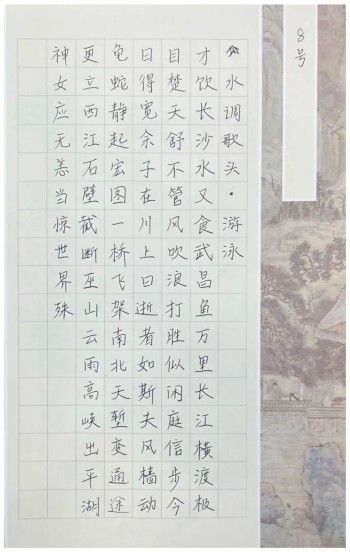 8号
水调歌头·游泳
才饮长沙水又食武昌鱼万里长江横渡极
目楚天舒不管风吹浪打胜似闲庭信步今
日得宽余子在川上曰逝者如斯夫风樯动
龟蛇静起宏图一桥飞架南北天堑变通途
更立西江石壁截断巫山云雨高峡出平湖
神女应无恙当惊世界殊